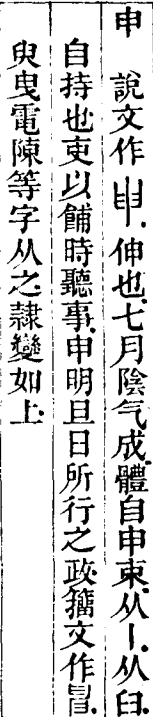 申 說文作𦥔.伸也.七月陰气成.體自申束.从丨.从臼.
自持也吏以餔時聽事.申明旦日所行之政.籒文作
臾曳電陳等字从之.隸變如上.